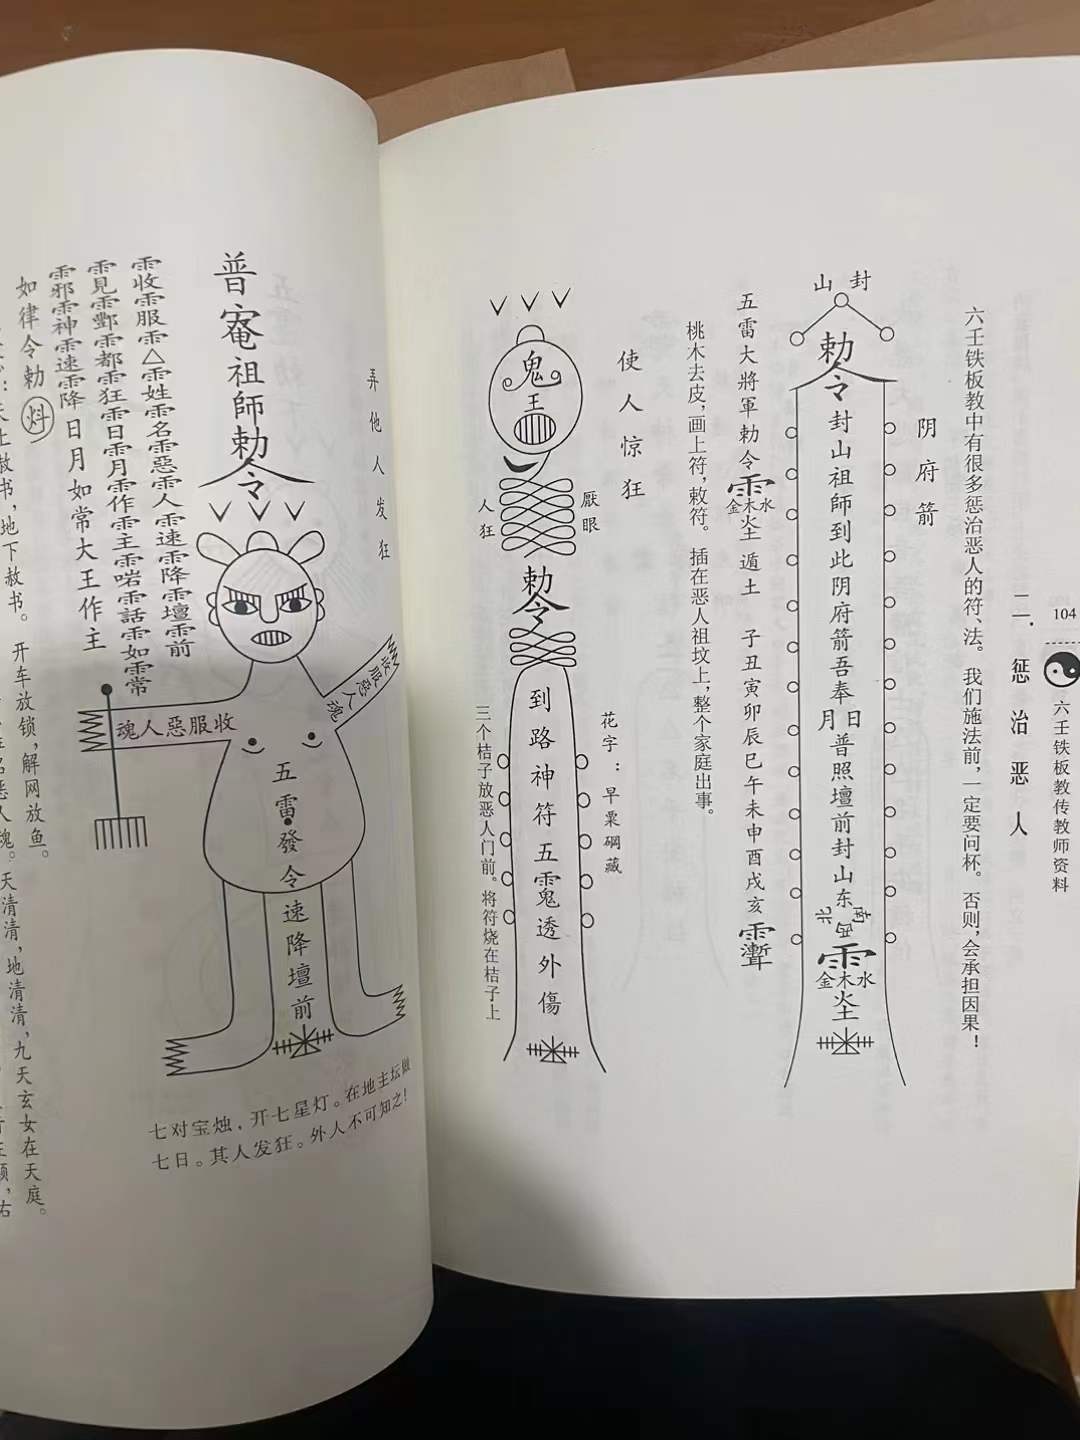 104
六壬铁板教传教师资料
二.惩治恶人
六壬铁板教中有很多惩治恶人的符、法。我们施法前，一定要问杯。否则，会承担因果！
阴府箭
封山
勅令
封山祖師到此阴府箭吾奉
日月
普照壇前封山
东南西北
金木水
五雷大將軍勅令
金木水
遁土
子丑寅卯辰巳午未申酉戌亥
桃木去皮，画上符，敕符。插在恶人祖坟上，整个家庭出事。
使人惊狂
鬼王
厭眼
人狂
勅令
到路神符五
透外傷
花字：早粟碙藏
三个桔子放恶人门前。将符烧在桔子上
弄他人发狂
普庵祖師勅令
收服惡人魂
收服惡人魂
五雷發令速降壇前
七对宝烛，开七星灯。在地主坛做
七日。其人发狂。外人不可知之！
雷收雷服雷△雷姓雷名雷惡雷人雷速雷降雷壇雷前
日月如常大王作主
如律令勅
地下赦书。开车放锁，解网放鱼。
天清清，地清清，九天玄女在天庭。